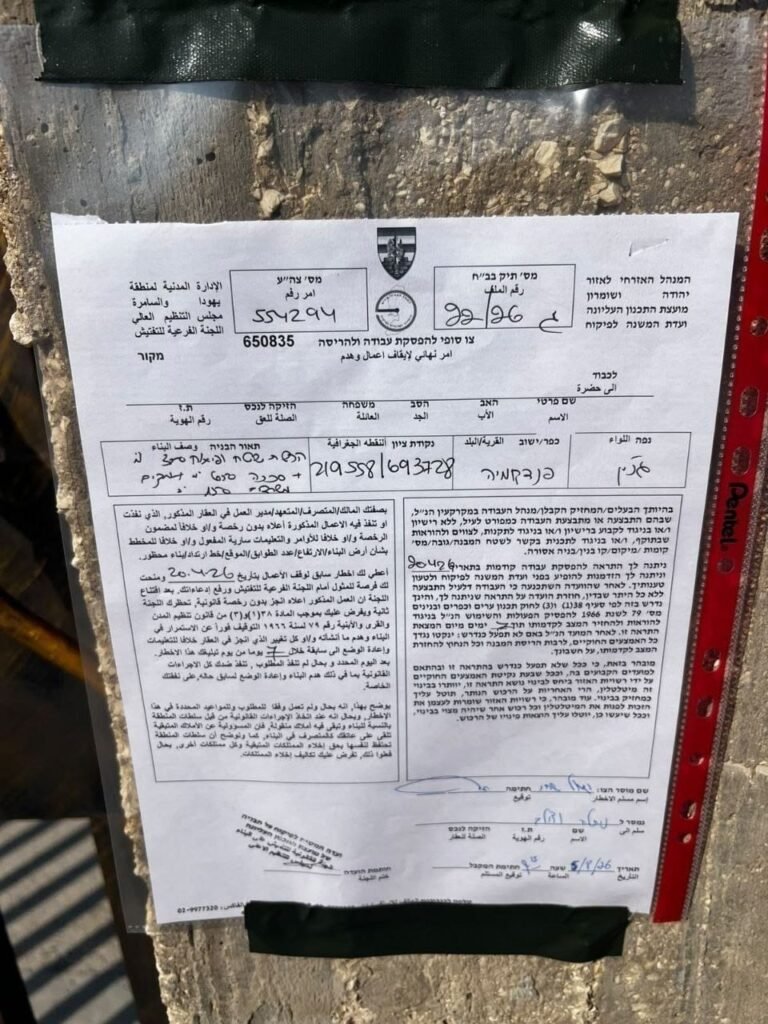 המנהל האזרחי לאזור
יהודה ושומרון
מועצת התכנון העליונה
ועדת המשנה לפיקוח
מס' תיק בב"ח
رقم الملف
ג 22/26
מס' צה"ע
امر رقم
554294
الإدارة المدنية لمنطقة
يهودا والسامرة
مجلس التنظيم العالي
اللجنة الفرعية للتفتيش
צו סופי להפסקת עבודה ולהריסה
650835
امر نهائي لايقاف اعمال وهدم
מקור
לכבוד
الى حضرة
שם פרטי האב הסב משפחה הזיקה לנכס ת.ז
الاسم الأب الجد العائلة الصلة للعق رقم الهوية
נפה اللواء
כפר/ישוב القرية/البلد
נקודת ציון النقطه الجغرافية
תאור הבניה وصف البناء
ג'נין
פנדקמיה
219558/693728
בהיותך הבעלים/המחזיק הקבלן/מנהל העבודה במקרקעין הנ"ל,
שבהם התבצעה או מתבצעת העבודה כמפורט לעיל, ללא רישיון
ו/או בניגוד לקבוע ברישיון ו/או בניגוד לתקנות, לצווים ולהוראות
שבתוקף, ו/או בניגוד לתכנית בקשר לשטח המבנה/גובה/מס'
קומות /מיקום/קו בנין/בניה אסורה.
ניתנה לך התראה להפסקת עבודה קודמת בתאריך 20.4.26
וניתנה לך הזדמנות להופיע בפני ועדת המשנה לפיקוח ולטעון
טענותיך. לאחר שהוועדה השתכנעה כי העבודה דלעיל התבצעה
ללא כל היתר שבדין, חוזרת הועדה על התראה שניתנה לך, והינך
נדרש בזה לפי סעיף 38(1) ו(3) לחוק תכנון ערים וכפרים ובניינים
מס' 79 לשנת 1966 להפסיק הפעולות והשימוש הנ"ל בניגוד
להוראות ולהחזיר המצב לקדמותו תוך 7 ימים מיום המצאת
התראה זו. לאחר המועד הנ"ל באם לא תפעל כנדרש: ינקטו נגדך
כל האמצעים החוקיים, לרבות הריסת המבנה וכל הנחוץ להחזרת
המצב לקדמותו, על חשבונך.
מובהר בזאת, כי ככל שלא תפעל כנדרש בהתראה זו ובהתאם
למועדים הקבועים בה, ובכל שעת נקיטת האמצעים החוקיים
על ידי רשויות האזור ביחס לבינוי נושא התראה זו, יוותרו בבינוי
זה מיטלטלין, הרי האחריות על הרכוש הנותר, תוטל עליך
כמחזיק בבינוי. עוד מובהר, כי רשויות האזור שומרות לעצמן את
הזכות לפנות את המיטלטלין וכל רכוש אחר שיהיה מצוי בבינוי,
וככל שיעשו כן, יוטלו עליך הוצאות פינויו של הרכוש.
بصفتك المالك/المتصرف/المتعهد/مدير العمل في العقار المذكور، الذي نفذت
او تنفذ فيه الاعمال المذكورة أعلاه بدون رخصة و/او خلافا لمضمون
الرخصة و/او خلافا للأوامر والتعليمات سارية المفعول و/او خلافا للمخطط
بشأن أرض البناء/الارتفاع/عدد الطوابق/الموقع/خط ارتداد/بناء محظور.
أعطي لك اخطار سابق لوقف الأعمال بتاريخ 20.4.26 ومنحت
لك فرصة للمثول أمام اللجنة الفرعية للتفتيش ورفع إدعاءاتك. بعد اقتناع
اللجنة ان العمل المذكور أعلاه انجز بدون رخصة قانونية، تحظرك اللجنة
ثانية ويفرض عليك بموجب المادة ٣٨(١)و(٣) من قانون تنظيم المدن
والقرى والأبنية رقم ٧٩ لسنة ١٩٦٦ التوقيف فوراً عن الاستمرار في
البناء وهدم ما أنشأته و/او كل تغيير الذي انجز في العقار خلافا للتعليمات
وإعادة الوضع الى سابقة خلال 7 يوما من يوم تبليغك هذا الاخطار.
بعد اليوم المحدد و بحال لم تنفذ المطلوب، تنفذ ضدك كل الاجراءات
القانونية بما في ذلك هدم البناء وإعادة الوضع لسابق حاله، على نفقتك
الخاصة.
يوضح بهذا، انه بحال ولم تعمل وفقا للمطلوب وللمواعيد المحددة في هذا
الإخطار، وبحال انه عند اتخاذ الإجراءات القانونية من قبل سلطات المنطقة
بالنسبة للبناء وتبقى فيه املاك منقولة، فان المسؤولية عن الاملاك المتبقية
تلقى على عاتقك كالمتصرف في البناء. كما ونوضح أن سلطات المنطقة
تحتفظ لنفسها بحق إخلاء الممتلكات المتبقية وكل ممتلكات اخرى، وبحال
فعلوا ذلك، تفرض عليك تكاليف إخلاء الممتلكات.
שם מוסר הצו: חתימה
إسم مسلم الاخطار توقيع
נמסר ל
سلم الى
שם ת.ז הזיקה לנכס
الاسم رقم الهوية الصلة لعقار
תאריך 5/5/26 שעה חתימת המקבל
التاريخ الساعة توقيع المستلم
חותמת הועדה
ختم اللجنة
02-9977320
Pentel